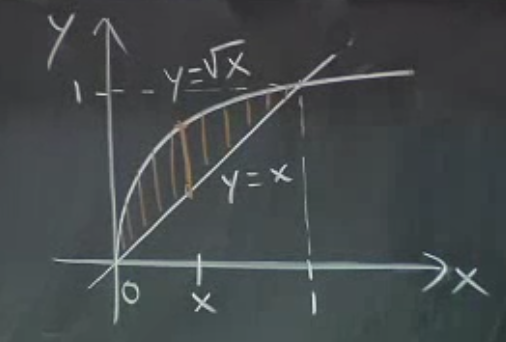 y
y=√x
1
y=x
0
x
1
x